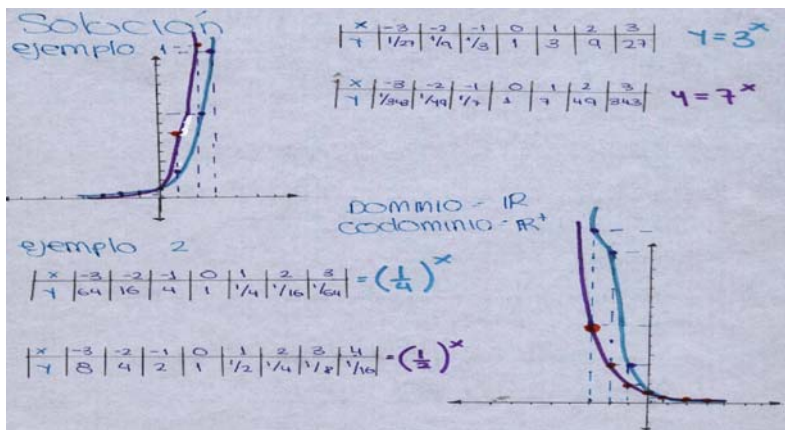 Solución
ejemplo 1
x -3 -2 -1 0 1 2 3
y 1/27 1/9 1/3 1 3 9 27
y = 3^x
x -3 -2 -1 0 1 2 3
y 1/343 1/49 1/7 1 7 49 343
y = 7^x
Dominio - IR
Codominio - IR+
ejemplo 2
x -3 -2 -1 0 1 2 3
y 64 16 4 1 1/4 1/16 1/64
= (1/4)^x
x -3 -2 -1 0 1 2 3 4
y 8 4 2 1 1/2 1/4 1/8 1/16
= (1/2)^x